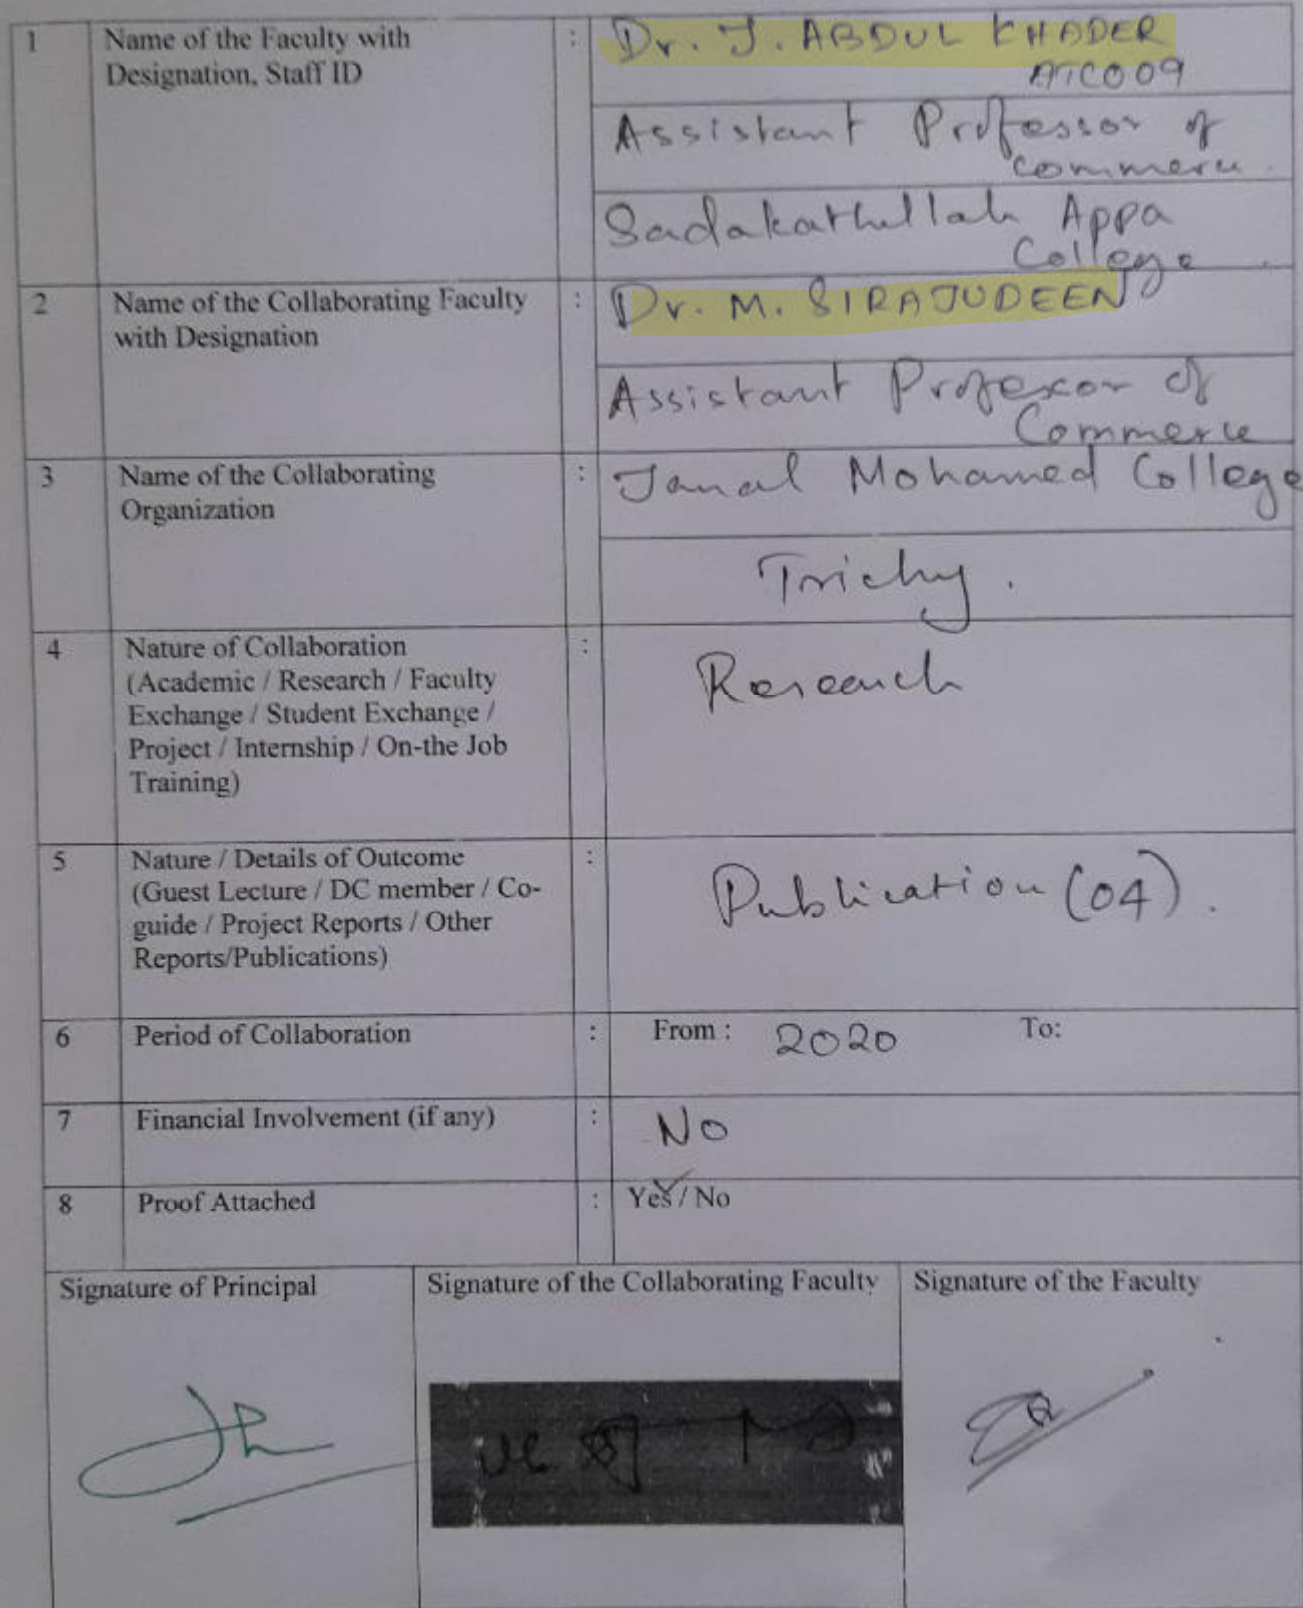 1 Name of the Faculty with : Dr. J. ABDUL KHADER
Designation, Staff ID ATCO09
Assistant Professor of
Commerce.
Sadakathullah Appa
College
2 Name of the Collaborating Faculty : Dr. M. SIRAJUDEEN
with Designation
Assistant Professor of
Commerce
3 Name of the Collaborating : Jamal Mohamed College
Organization
Trichy.
4 Nature of Collaboration :
(Academic / Research / Faculty Research
Exchange / Student Exchange /
Project / Internship / On-the Job
Training)
5 Nature / Details of Outcome :
(Guest Lecture / DC member / Co- Publication (04).
guide / Project Reports / Other
Reports/Publications)
6 Period of Collaboration : From : 2020 To:
7 Financial Involvement (if any) : No
8 Proof Attached : Yes / No
Signature of Principal Signature of the Collaborating Faculty Signature of the Faculty